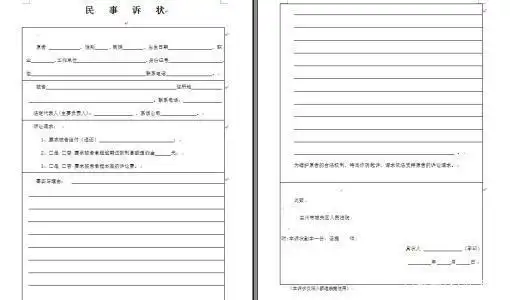 民 事 诉 状
原告 ，性别 ，民族 ，出生日期 ，职
业 ，工作单位 ，身份证号
住 联系电话
被告 住所地
，联系电话：
法定代表人（主要负责人）： ，系该公司 。
诉讼请求：
1、要求被告给付（退还） ；
2、□是 □否 要求被告 元。
3、□是 □否 要求被告承担本案的诉讼费。
事实与理由：
为维护原告的合法权利，特向你院起诉，请求依法支持原告的诉讼请求。
此致
兰州市城关区人民法院
附：本诉状副本一份，证据 件。
具状人 （手印）
年 月 日